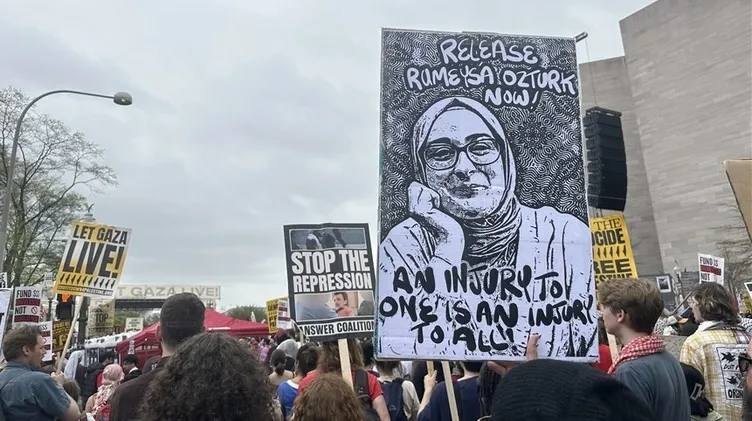 RELEASE
RUMEYSA OZTURK
NOW!
AN INJURY TO
ONE IS AN INJURY
TO ALL!
LET GAZA
LIVE!
STOP THE
REPRESSION
ANSWER COALITION
T GAZA LIVE!
THE
CIDE
FREE
FUND
IS NOT
FUND IS
NOT